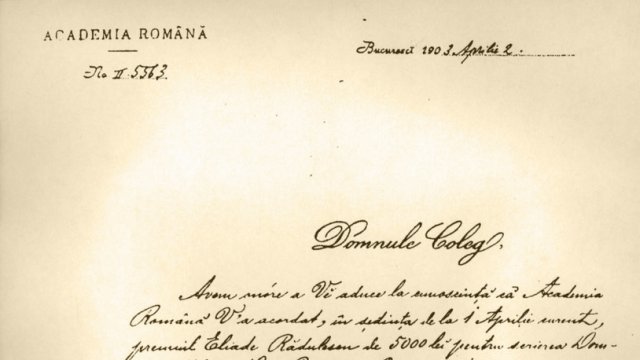 ACADEMIA ROMÂNĂ
No II 5563.
Bucuresci 1903 Aprilie 2.
Domnule Coleg,
Avem onóre a Vĕ aduce la cunoscință că Academia
Română V'a acordat, în sedința de la 1 Aprilie curent,
premiul Eliade Rădulescu de 5000 lei pentru scrierea Dom-